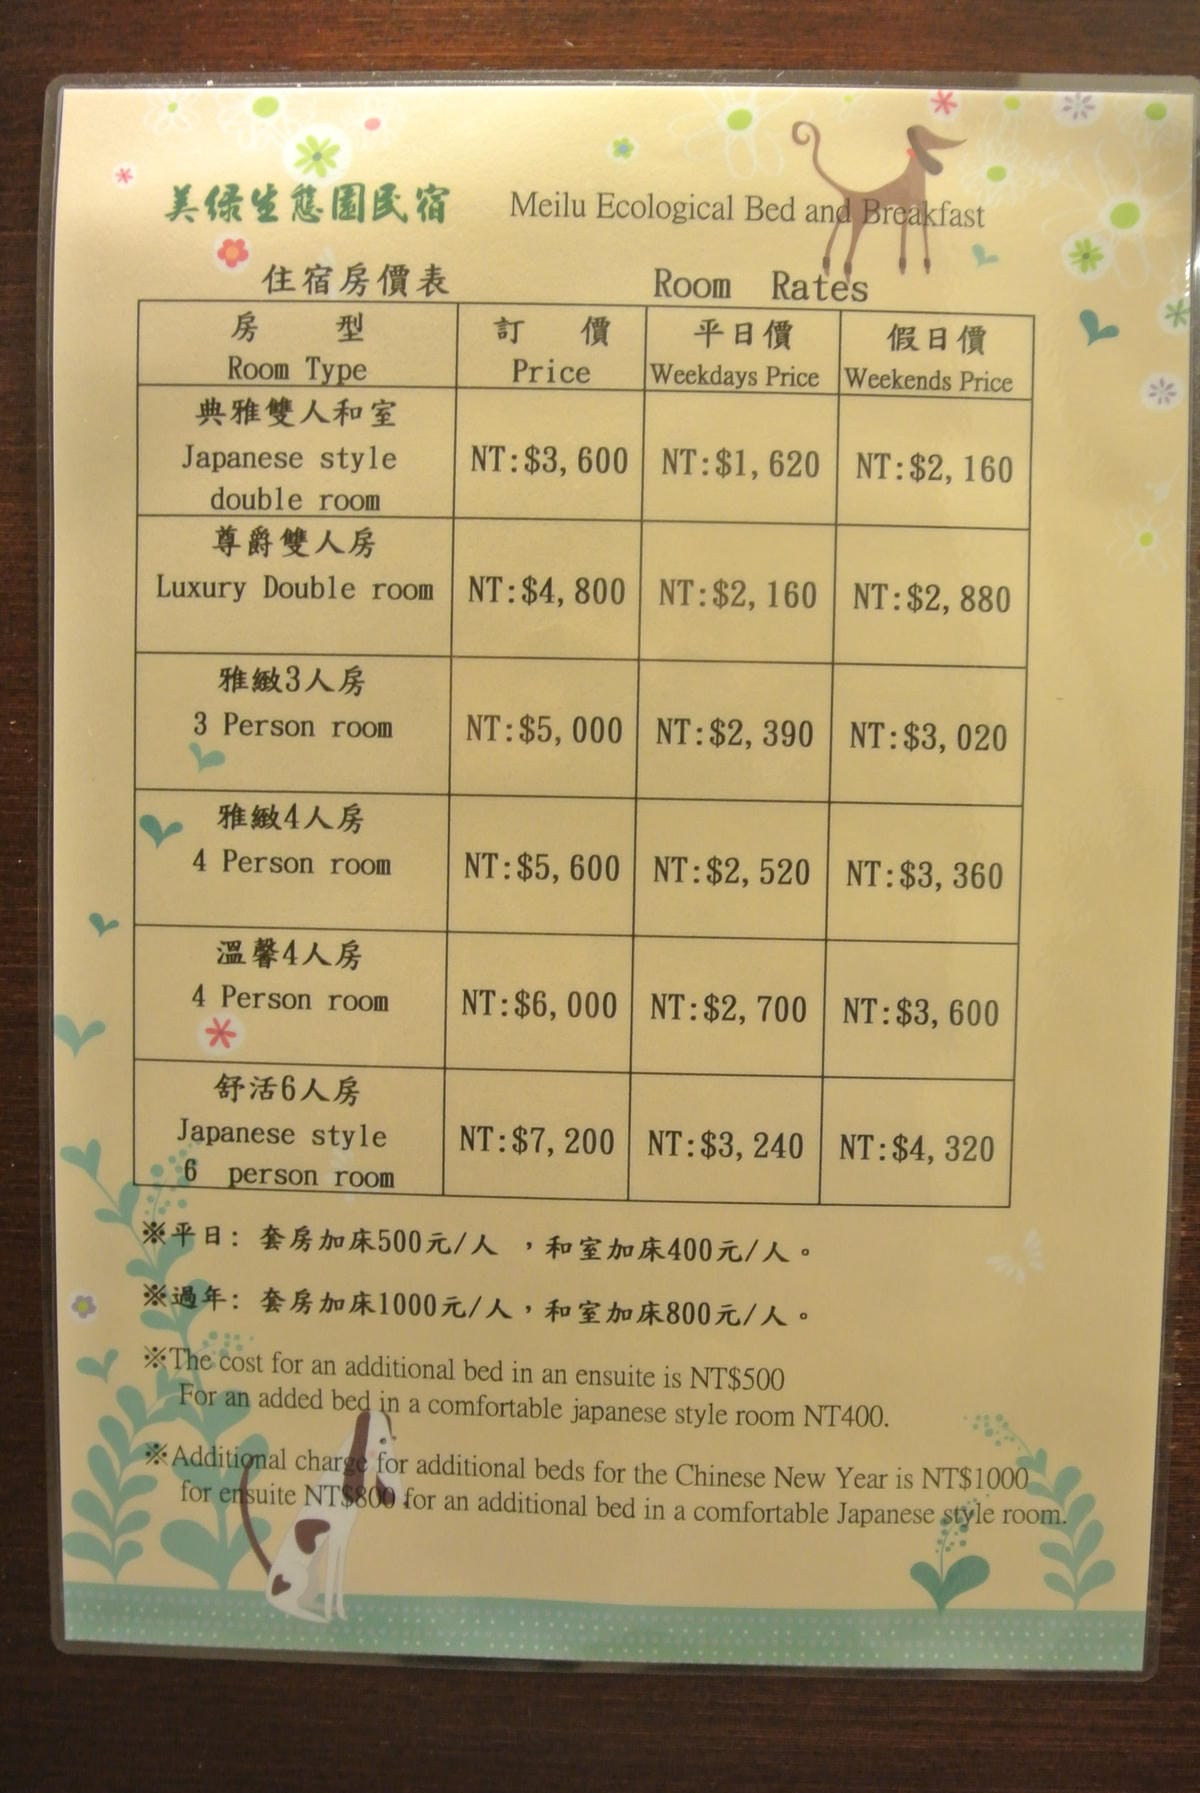 美綠生態園民宿 Meilu Ecological Bed and Breakfast
住宿房價表 Room Rates
房型 訂價 平日價 假日價
Room Type Price Weekdays Price Weekends Price
典雅雙人和室
Japanese style NT:$3,600 NT:$1,620 NT:$2,160
double room
尊爵雙人房
Luxury Double room NT:$4,800 NT:$2,160 NT:$2,880
雅緻3人房
3 Person room NT:$5,000 NT:$2,390 NT:$3,020
雅緻4人房
4 Person room NT:$5,600 NT:$2,520 NT:$3,360
溫馨4人房
4 Person room NT:$6,000 NT:$2,700 NT:$3,600
舒活6人房
Japanese style NT:$7,200 NT:$3,240 NT:$4,320
6 person room
※平日: 套房加床500元/人 ，和室加床400元/人。
※過年: 套房加床1000元/人，和室加床800元/人。
※The cost for an additional bed in an ensuite is NT$500
For an added bed in a comfortable japanese style room NT400.
※Additional charge for additional beds for the Chinese New Year is NT$1000
for ensuite NT$800 for an additional bed in a comfortable Japanese style room.